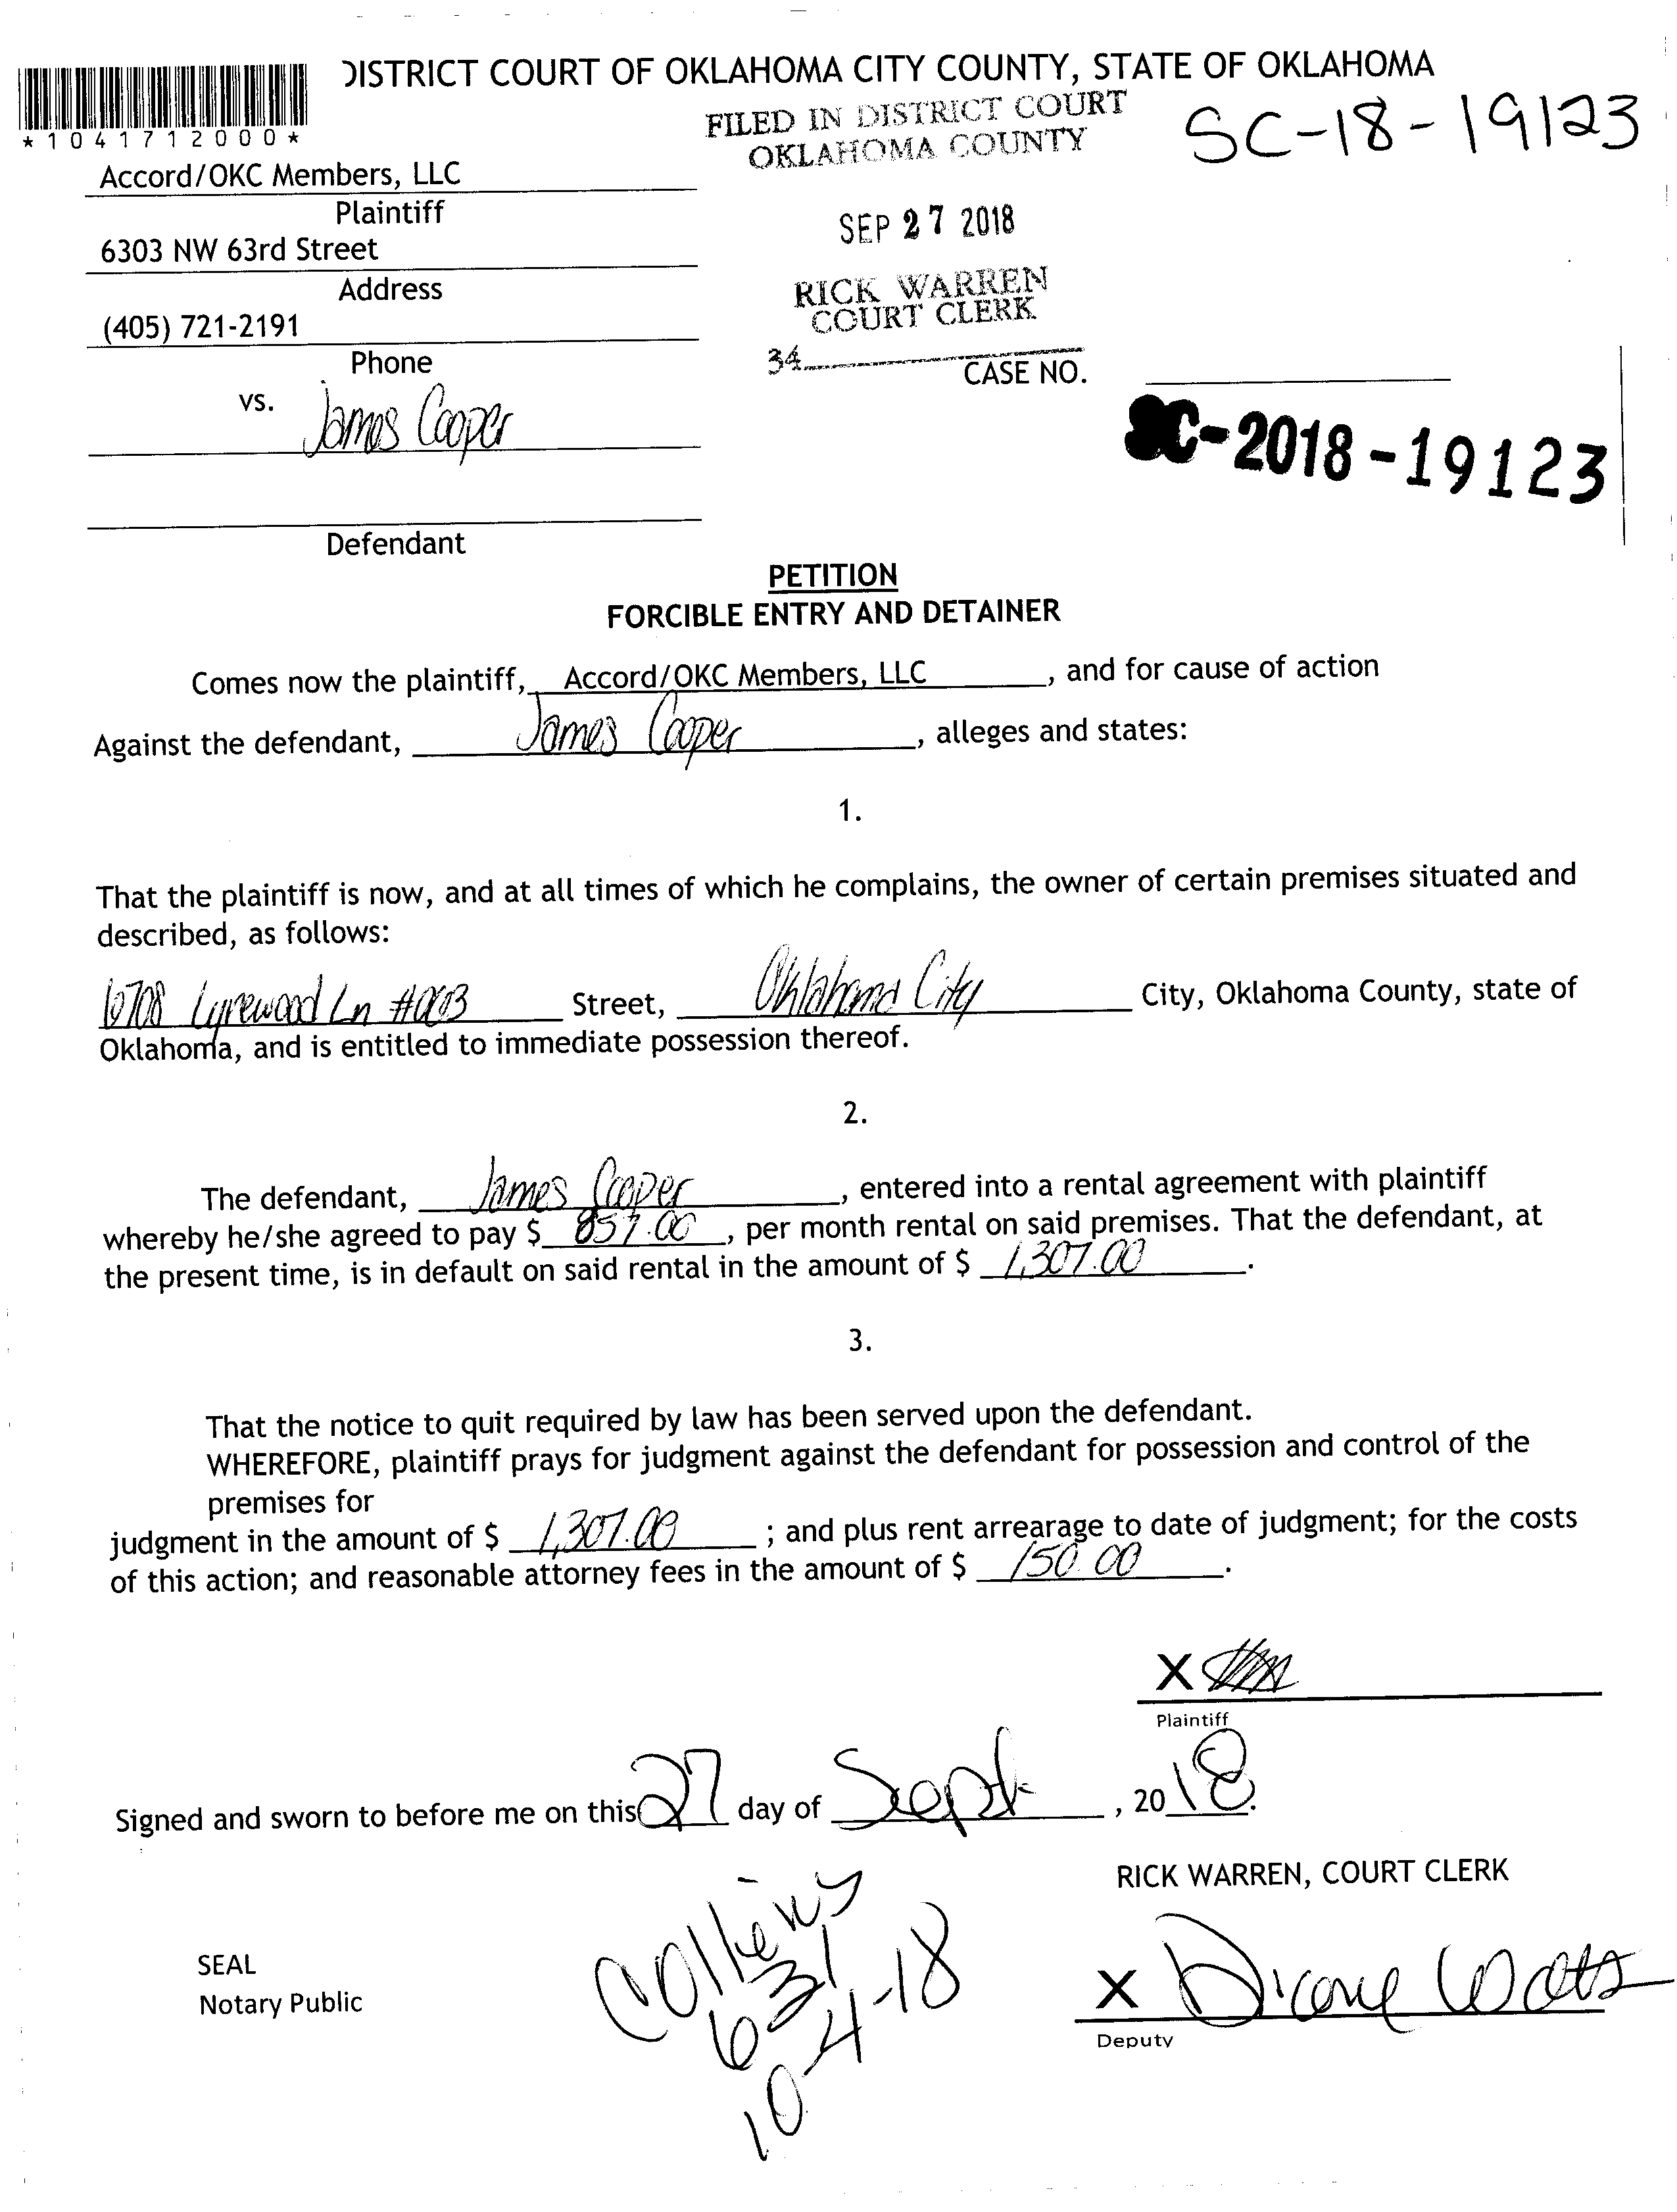 DISTRICT COURT OF OKLAHOMA CITY COUNTY, STATE OF OKLAHOMA
*1041712000*
FILED IN DISTRICT COURT
OKLAHOMA COUNTY
SC-18-19123
Accord/OKC Members, LLC
Plaintiff
SEP 27 2018
6303 NW 63rd Street
Address
RICK WARREN
COURT CLERK
(405) 721-2191
Phone
34
CASE NO.
vs. James Cooper
SC-2018-19123
Defendant
PETITION
FORCIBLE ENTRY AND DETAINER
Comes now the plaintiff, Accord/OKC Members, LLC, and for cause of action
Against the defendant, James Cooper, alleges and states:
1.
That the plaintiff is now, and at all times of which he complains, the owner of certain premises situated and
described, as follows:
6708 Lyrewood Ln #0003 Street, Oklahoma City City, Oklahoma County, state of
Oklahoma, and is entitled to immediate possession thereof.
2.
The defendant, James Cooper, entered into a rental agreement with plaintiff
whereby he/she agreed to pay $ 857.00, per month rental on said premises. That the defendant, at
the present time, is in default on said rental in the amount of $ 1,307.00.
3.
That the notice to quit required by law has been served upon the defendant.
WHEREFORE, plaintiff prays for judgment against the defendant for possession and control of the
premises for
judgment in the amount of $ 1,307.00; and plus rent arrearage to date of judgment; for the costs
of this action; and reasonable attorney fees in the amount of $ 150.00.
X
Plaintiff
Signed and sworn to before me on this 27 day of Sept, 2018.
RICK WARREN, COURT CLERK
Collins
631
10-4-18
SEAL
Notary Public
X Diane Watts
Deputy